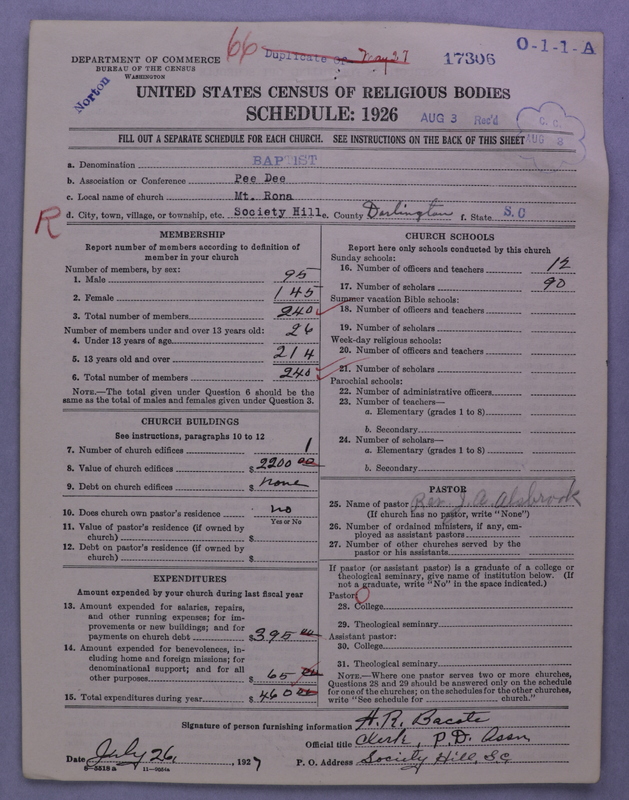 66 Duplicate of May 27 17306 O-1-1-A
DEPARTMENT OF COMMERCE
BUREAU OF THE CENSUS
WASHINGTON
Norton
UNITED STATES CENSUS OF RELIGIOUS BODIES
SCHEDULE: 1926 AUG 3 Rec'd
C. C.
AUG 8
FILL OUT A SEPARATE SCHEDULE FOR EACH CHURCH. SEE INSTRUCTIONS ON THE BACK OF THIS SHEET
a. Denomination BAPTIST
b. Association or Conference Pee Dee
c. Local name of church Mt. Rona
R d. City, town, village, or township, etc. Society Hill e. County Darlington f. State S. C
MEMBERSHIP
Report number of members according to definition of
member in your church
Number of members, by sex:
1. Male 95
2. Female 145
3. Total number of members 240
Number of members under and over 13 years old:
4. Under 13 years of age 26
5. 13 years old and over 214
6. Total number of members 240
NOTE.—The total given under Question 6 should be
same as the total of males and females given under Question 3.
CHURCH BUILDINGS
See instructions, paragraphs 10 to 12
7. Number of church edifices 1
8. Value of church edifices $2200 00
9. Debt on church edifices $ none
10. Does church own pastor's residence no
Yes or No
11. Value of pastor's residence (if owned by
church) $
12. Debt on pastor's residence (if owned by
church) $
EXPENDITURES
Amount expended by your church during last fiscal year
13. Amount expended for salaries, repairs,
and other running expenses; for im-
provements or new buildings; and for
payments on church debt $395 00
14. Amount expended for benevolences, in-
cluding home and foreign missions; for
denominational support; and for all
other purposes $ 65 00
15. Total expenditures during year $460 00
CHURCH SCHOOLS
Report here only schools conducted by this church
Sunday schools:
16. Number of officers and teachers 12
17. Number of scholars 90
Summer vacation Bible schools:
18. Number of officers and teachers
19. Number of scholars
Week-day religious schools:
20. Number of officers and teachers
21. Number of scholars
Parochial schools:
22. Number of administrative officers
23. Number of teachers—
a. Elementary (grades 1 to 8)
b. Secondary
24. Number of scholars—
a. Elementary (grades 1 to 8)
b. Secondary
PASTOR
25. Name of pastor Rev J. A. Alsbrook
(If church has no pastor, write "None")
26. Number of ordained ministers, if any, em-
ployed as assistant pastors
27. Number of other churches served by the
pastor or his assistants
If pastor (or assistant pastor) is a graduate of a college or
theological seminary, give name of institution below. (If
not a graduate, write "No" in the space indicated.)
Pastor:
28. College
29. Theological seminary
Assistant pastor:
30. College
31. Theological seminary
NOTE.—Where one pastor serves two or more churches,
Questions 28 and 29 should be answered only on the schedule
for one of the churches; on the schedules for the other churches,
write "See schedule for church."
Signature of person furnishing information H. R. Bacote
Official title Clerk, P. D. Assn
Date July 26, 1927 P. O. Address Society Hill, S C
6—5518 a 11—9034a